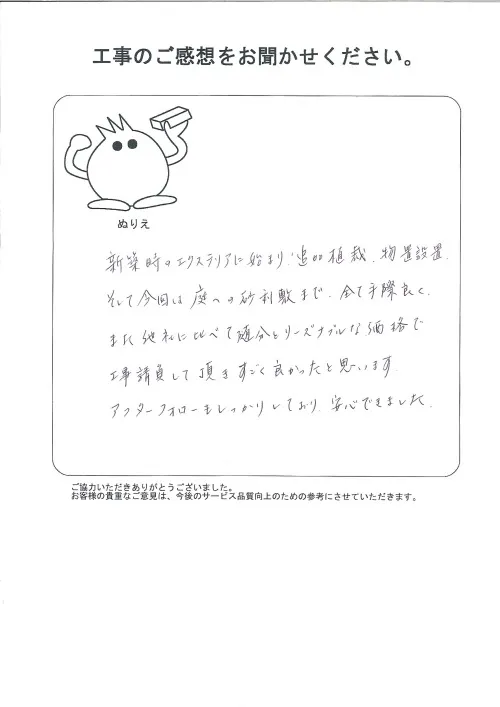 工事のご感想をお聞かせください。
ぬりえ
新築時のエクステリアに始まり、追加植栽、物置設置、
そして今回は庭への砂利敷まで、全て手際良く、
また他社に比べて随分とリーズナブルな価格で
工事請負して頂きすごく良かったと思います。
アフターフォローもしっかりしており、安心できました。
ご協力いただきありがとうございました。
お客様の貴重なご意見は、今後のサービス品質向上のための参考にさせていただきます。